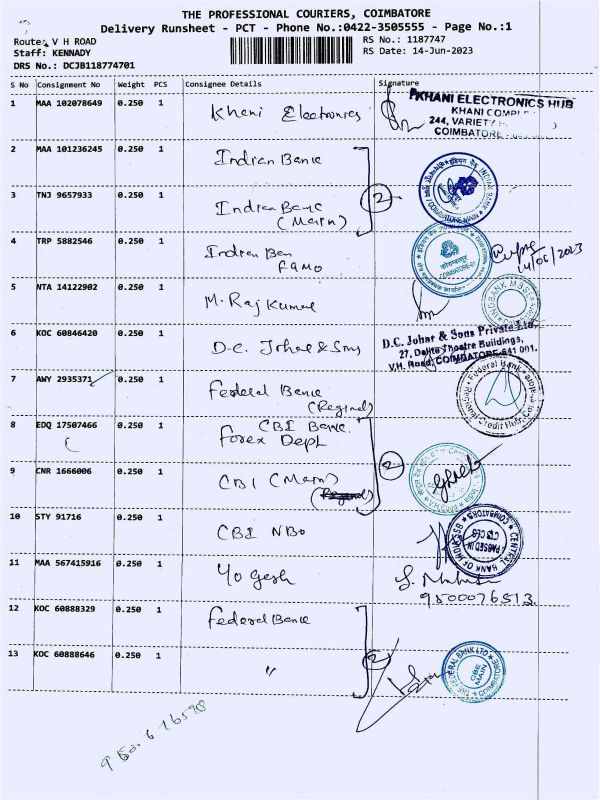 THE PROFESSIONAL COURIERS, COIMBATORE
Delivery Runsheet - PCT - Phone No.:0422-3505555 - Page No.:1
Route: V H ROAD
RS No.: 1187747
Staff: KENNADY
RS Date: 14-Jun-2023
DRS No.: DCJB118774701
S No Consignment No Weight PCS Consignee Details Signature
1 MAA 102078649 0.250 1 Khani Electronics
KHANI ELECTRONICS HUB
KHANI COMPLEX
244, VARIETY
COIMBATORE
2 MAA 101236245 0.250 1 Indian Bank
3 TNJ 9657933 0.250 1 Indian Bank
(Main)
2
4 TRP 5882546 0.250 1 Indian Ban
FGMO
COIMBATORE-01
14/06/2023
5 NTA 14122902 0.250 1 M. Raj Kumar
6 KOC 60846420 0.250 1 D.C. Johar & Sons
D.C. Johar & Sons Private Ltd,
27, Dalite Theatre Buildings,
V.H. Road, COIMBATORE-641 001.
7 AWY 2935371 0.250 1 Federal Bank
(Reginal)
Federal Bank
8 EDQ 17507466 0.250 1 CBI Bank.
Forex Dept
9 CNR 1666006 0.250 1 CBI (Main)
2
10 STY 91716 0.250 1 CBI NBO
CENTRAL BANK OF INDIA
PASSED IN
11 MAA 567415916 0.250 1 Yogesh
9500076513.
12 KOC 60888329 0.250 1 Federal Bank
13 KOC 60888646 0.250 1 "
2
THE FEDERAL BANK LTD
CBE MAIN
COIMBATORE